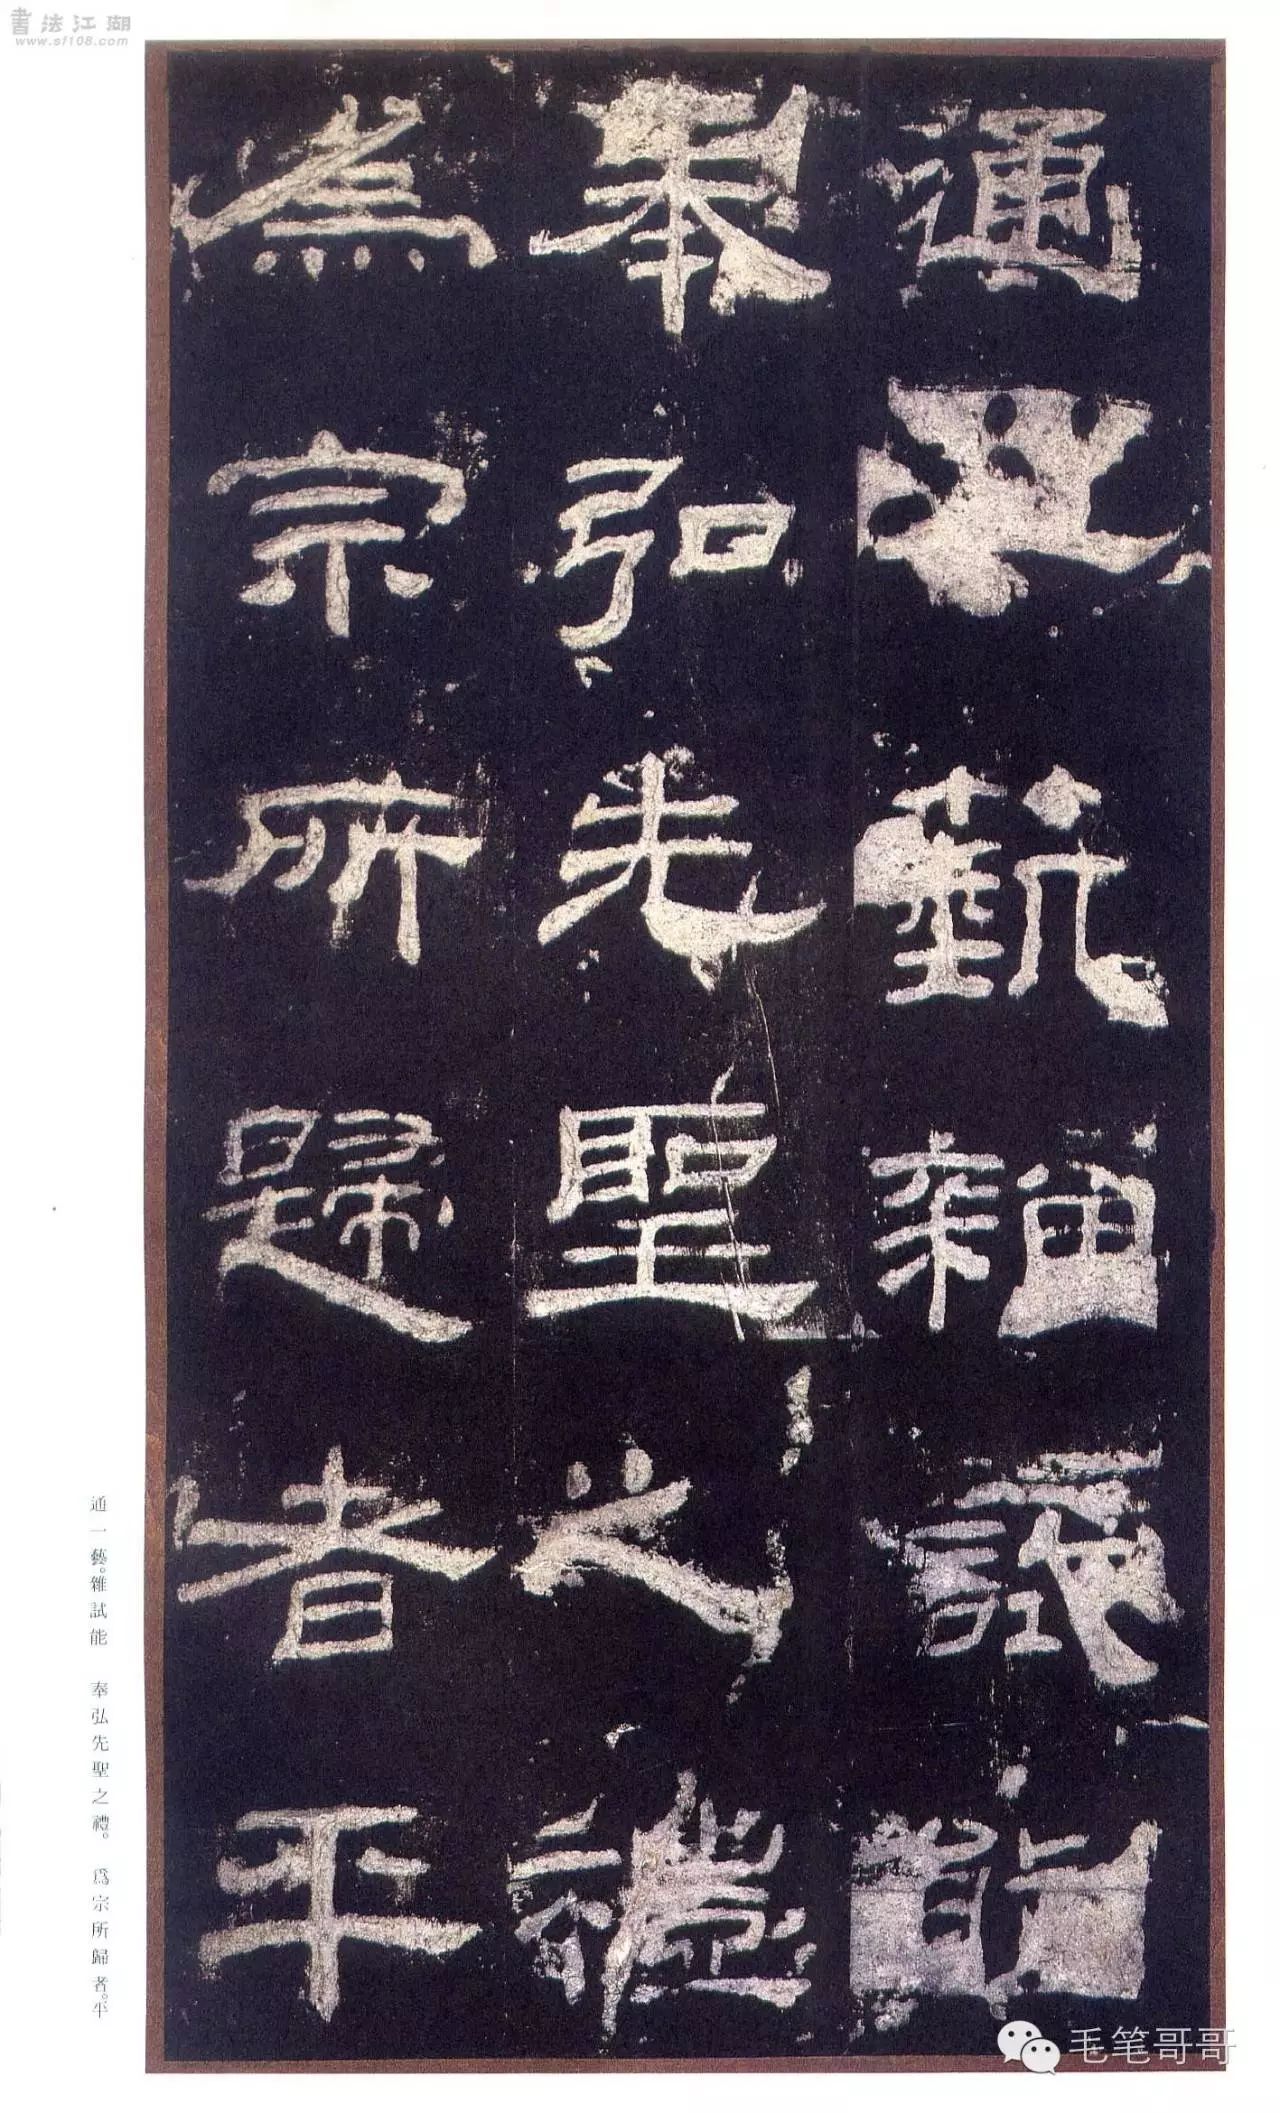 書法江湖
www.sf108.com
通一藝雜試能
奉弘先聖之禮
為宗所歸者平
通一藝。雜試能　奉弘先聖之禮。　爲宗所歸者。平
毛笔哥哥